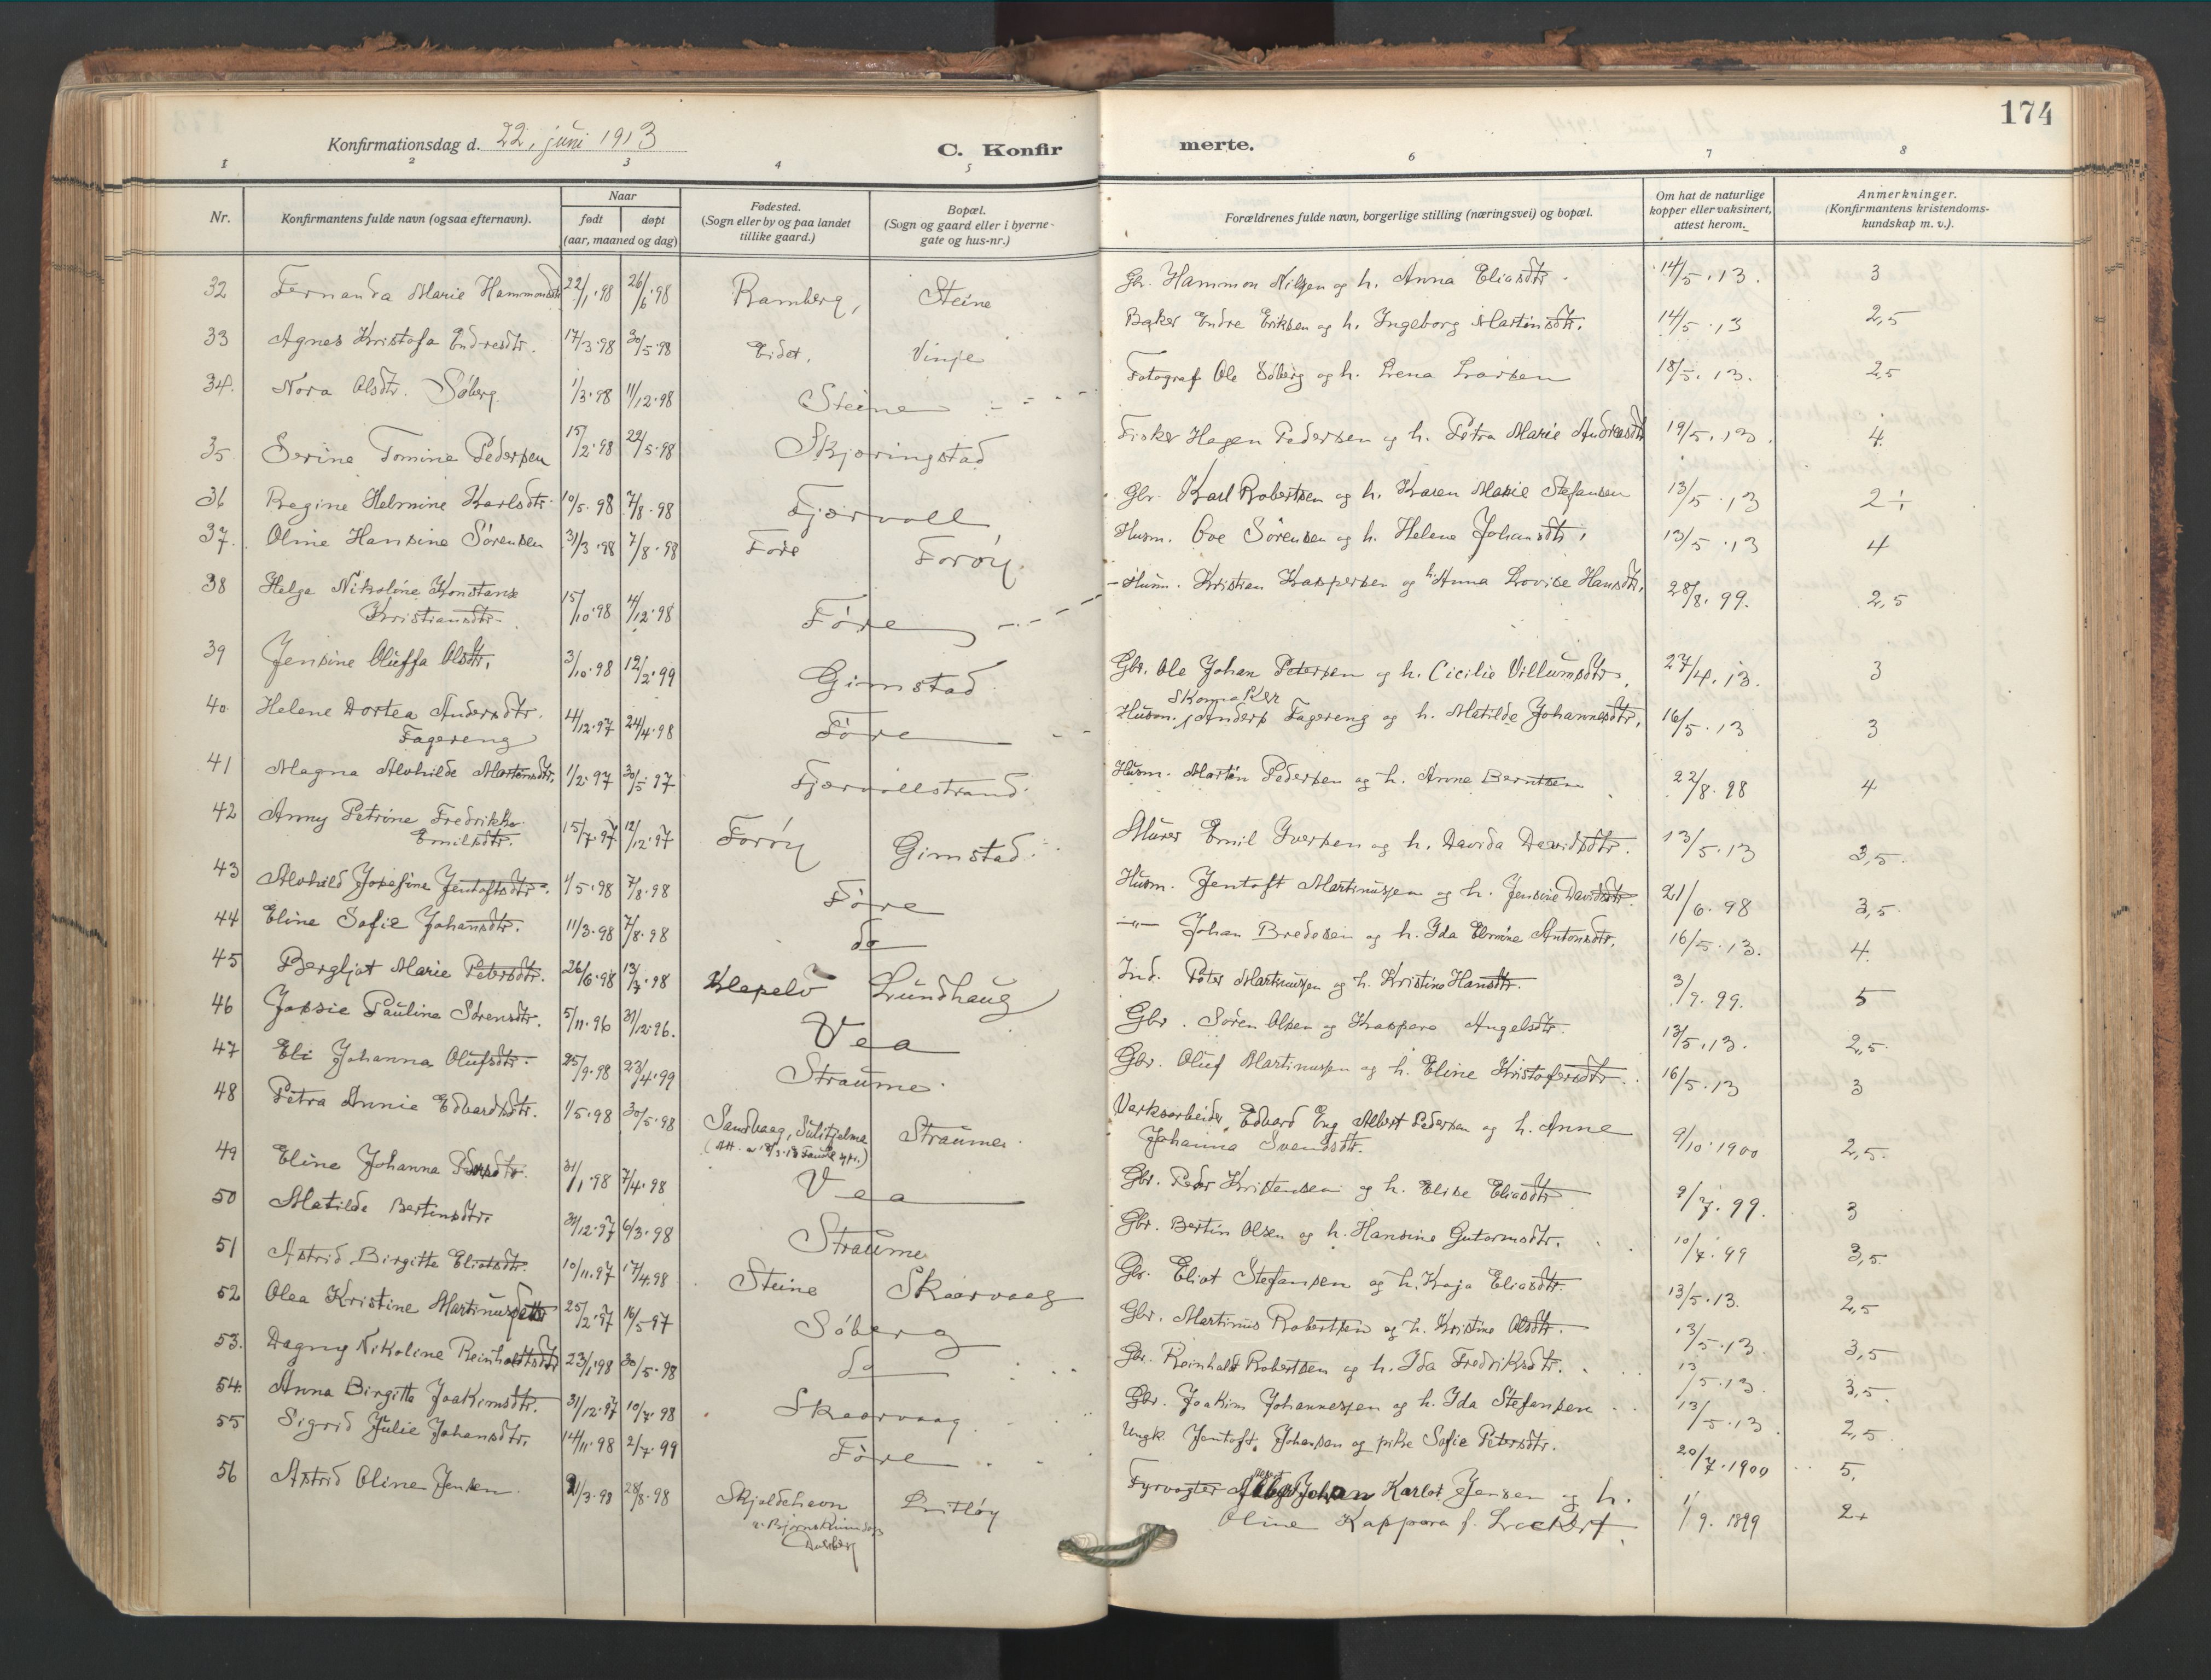 174
Konfirmationsdag d. 22, juni 1913
C. Konfirmerte.
1 2 3 4 5 6 7 8
Nr.
Konfirmantens fulde navn (ogsaa efternavn).
Naar
født
døpt
(aar, maaned og dag)
Fødested.
(Sogn eller by og paa landet
tillike gaard.)
Bopæl.
(Sogn og gaard eller i byerne
gate og hus-nr.)
Forældrenes fulde navn, borgerlige stilling (næringsvei) og bopæl.
Om hat de naturlige
kopper eller vaksinert,
attest herom.
Anmerkninger.
(Konfirmantens kristendoms-
kundskap m. v.).
32 Fernanda Marie Hammondtr 22/1·98 26/6·98 Ramberg, Steine Gbr. Hammon Nilsen og h. Anna Eliasdtr. 14/5·13. 3
33 Agnes Kristofa Endresdtr. 17/3·98 30/5·98 Eidet, Vinje Baker Endre Eriksen og h. Ingeborg Martinsdtr. 14/5·13 2,5
34. Nora Olsdtr. Søberg 1/3·98 11/12·98 Steine Fotograf Ole Søberg og h. Lena Larsen 18/5·13. 2,5
35 Serine Tomine Pedersen 15/2·98 22/5·98 Skjøringstad Fisker Hagen Pedersen og h. Petra Marie Andreasdtr 19/5·13. 4.
36 Regine Helmine Karlsdtr. 10/5·98 7/8·98 Fjærvoll Gbr. Karl Robertsen og h. Karen Marie Stefansen 13/5·13 2÷
37. Oline Hansine Sørensen 31/3·98 7/8·98 Føre Forøy. Husm. Ove Sørensen og h. Helene Johansdtr. 13/5·13 4
38 Helga Nikoline Konstanse
Kristiansdtr. 15/10·98 4/12·98 Føre Husm. Kristian Kaspersen og h. Anna Lovise Hansdtr. 28/8·99. 2,5
39 Jensine Oluffa Olsdtr. 3/10·98 12/2·99 Gimstad Gbr. Ole Johan Petersen og h. Cicilie Villumsdtr. 27/4·13. 3
40 Helene Dortea Andersdtr.
Fagereng 4/12·97 24/4·98 Føre Husm. skomaker Anders Fagereng og h. Matilde Johannesdtr. 16/5·13 3
41 Magna Alvhilde Martinsdtr. 1/2·97 30/5·97 Fjærvollstrand Husm. Martin Pedersen og h. Anne Berntsen 22/8·98 4
42 Anny Petrine Fredrikke
Emilsdtr. 15/7·97 12/12·97 Forøy Gimstad Murer Emil Iversen og h. Davida Davidsdtr. 13/5·13 3,5.
43 Alvhild Josefine Jentoftsdtr. 1/5·98 7/8·98 Føre Husm. Jentoft Martinusen og h. Jensine Davidsdtr. 21/6·98 3,5.
44 Eline Sofie Johansdtr. 11/3·98 7/8·98 do —"— Johan Bredesen og h. Ida Elmine Antonsdtr. 16/5·13. 4.
45 Bergljot Marie Petersdtr. 26/6·98 13/7·98 Klepelv Lundhaug Ind. Peter Martinusen og h. Kristine Hansdtr. 3/9·99. 5
46 Jossie Pauline Sørensdtr. 5/11·96 31/12·96. Vea Gbr. Søren Olsen og Kaspara Angelsdtr. 13/5·13. 2,5.
47 Eli Johanna Olufsdtr. 25/9·98 23/4·99 Straume Gbr. Oluf Martinusen og h. Eline Kristofersdtr. 16/5·13 3
48 Petra Annie Edvardsdtr. 1/5·98 30/5·98 Sandvaag, Sulitjelma Straume Verksarbeider Edvard Eng Albert Pedersen og h. Anne
Johanna Svendsdtr. 9/10·1900 2,5.
49 Eline Johanna Pedersdtr. 31/1·98 7/4·98 Vea Gbr. Peder Kristensen og h. Elise Eliasdtr 9/7·99. 3
50 Matilde Bertinsdtr. 31/12·97 6/3·98 Straume Gbr. Bertin Olsen og h. Hansine Gutormsdtr. 10/7·99 3,5.
51 Astrid Birgitte Eliotsdtr. 10/11·97 17/4·98 Steine Skaarvaag Gbr. Eliot Stefansen og h. Kaja Eliasdtr. 13/5·13. 2,5
52 Olea Kristine Martinusdatter 25/2·97 16/5·97 Søberg Gbr. Martinus Robertsen og h. Kristine Olsdtr. 13/5·13. 3,5
53. Dagny Nikoline Reinholdtsdtr 23/1·98 30/5·98 do Gbr. Reinholdt Robertsen og h. Ida Fredriksdtr. 13/5·13. 3,5.
54. Anna Birgitte Joakimsdtr. 31/12·97 10/7·98 Skaarvaag Gbr. Joakim Johannesen og h. Ida Stefansen 13/5·13 2,5.
55 Sigrid Julie Johansdtr. 14/11·98 2/7·99 Føre Ungk. Jentoft Johansen og pike Sofie Petersdtr. 20/7·1900 5.
56 Astrid Oline Jensen 21/3·98 28/8·98 Skjoldehavn Fyrvogter Johan Karlot Jensen og h.
Oline Kaspara f. Lockert 1/9·1899 2+